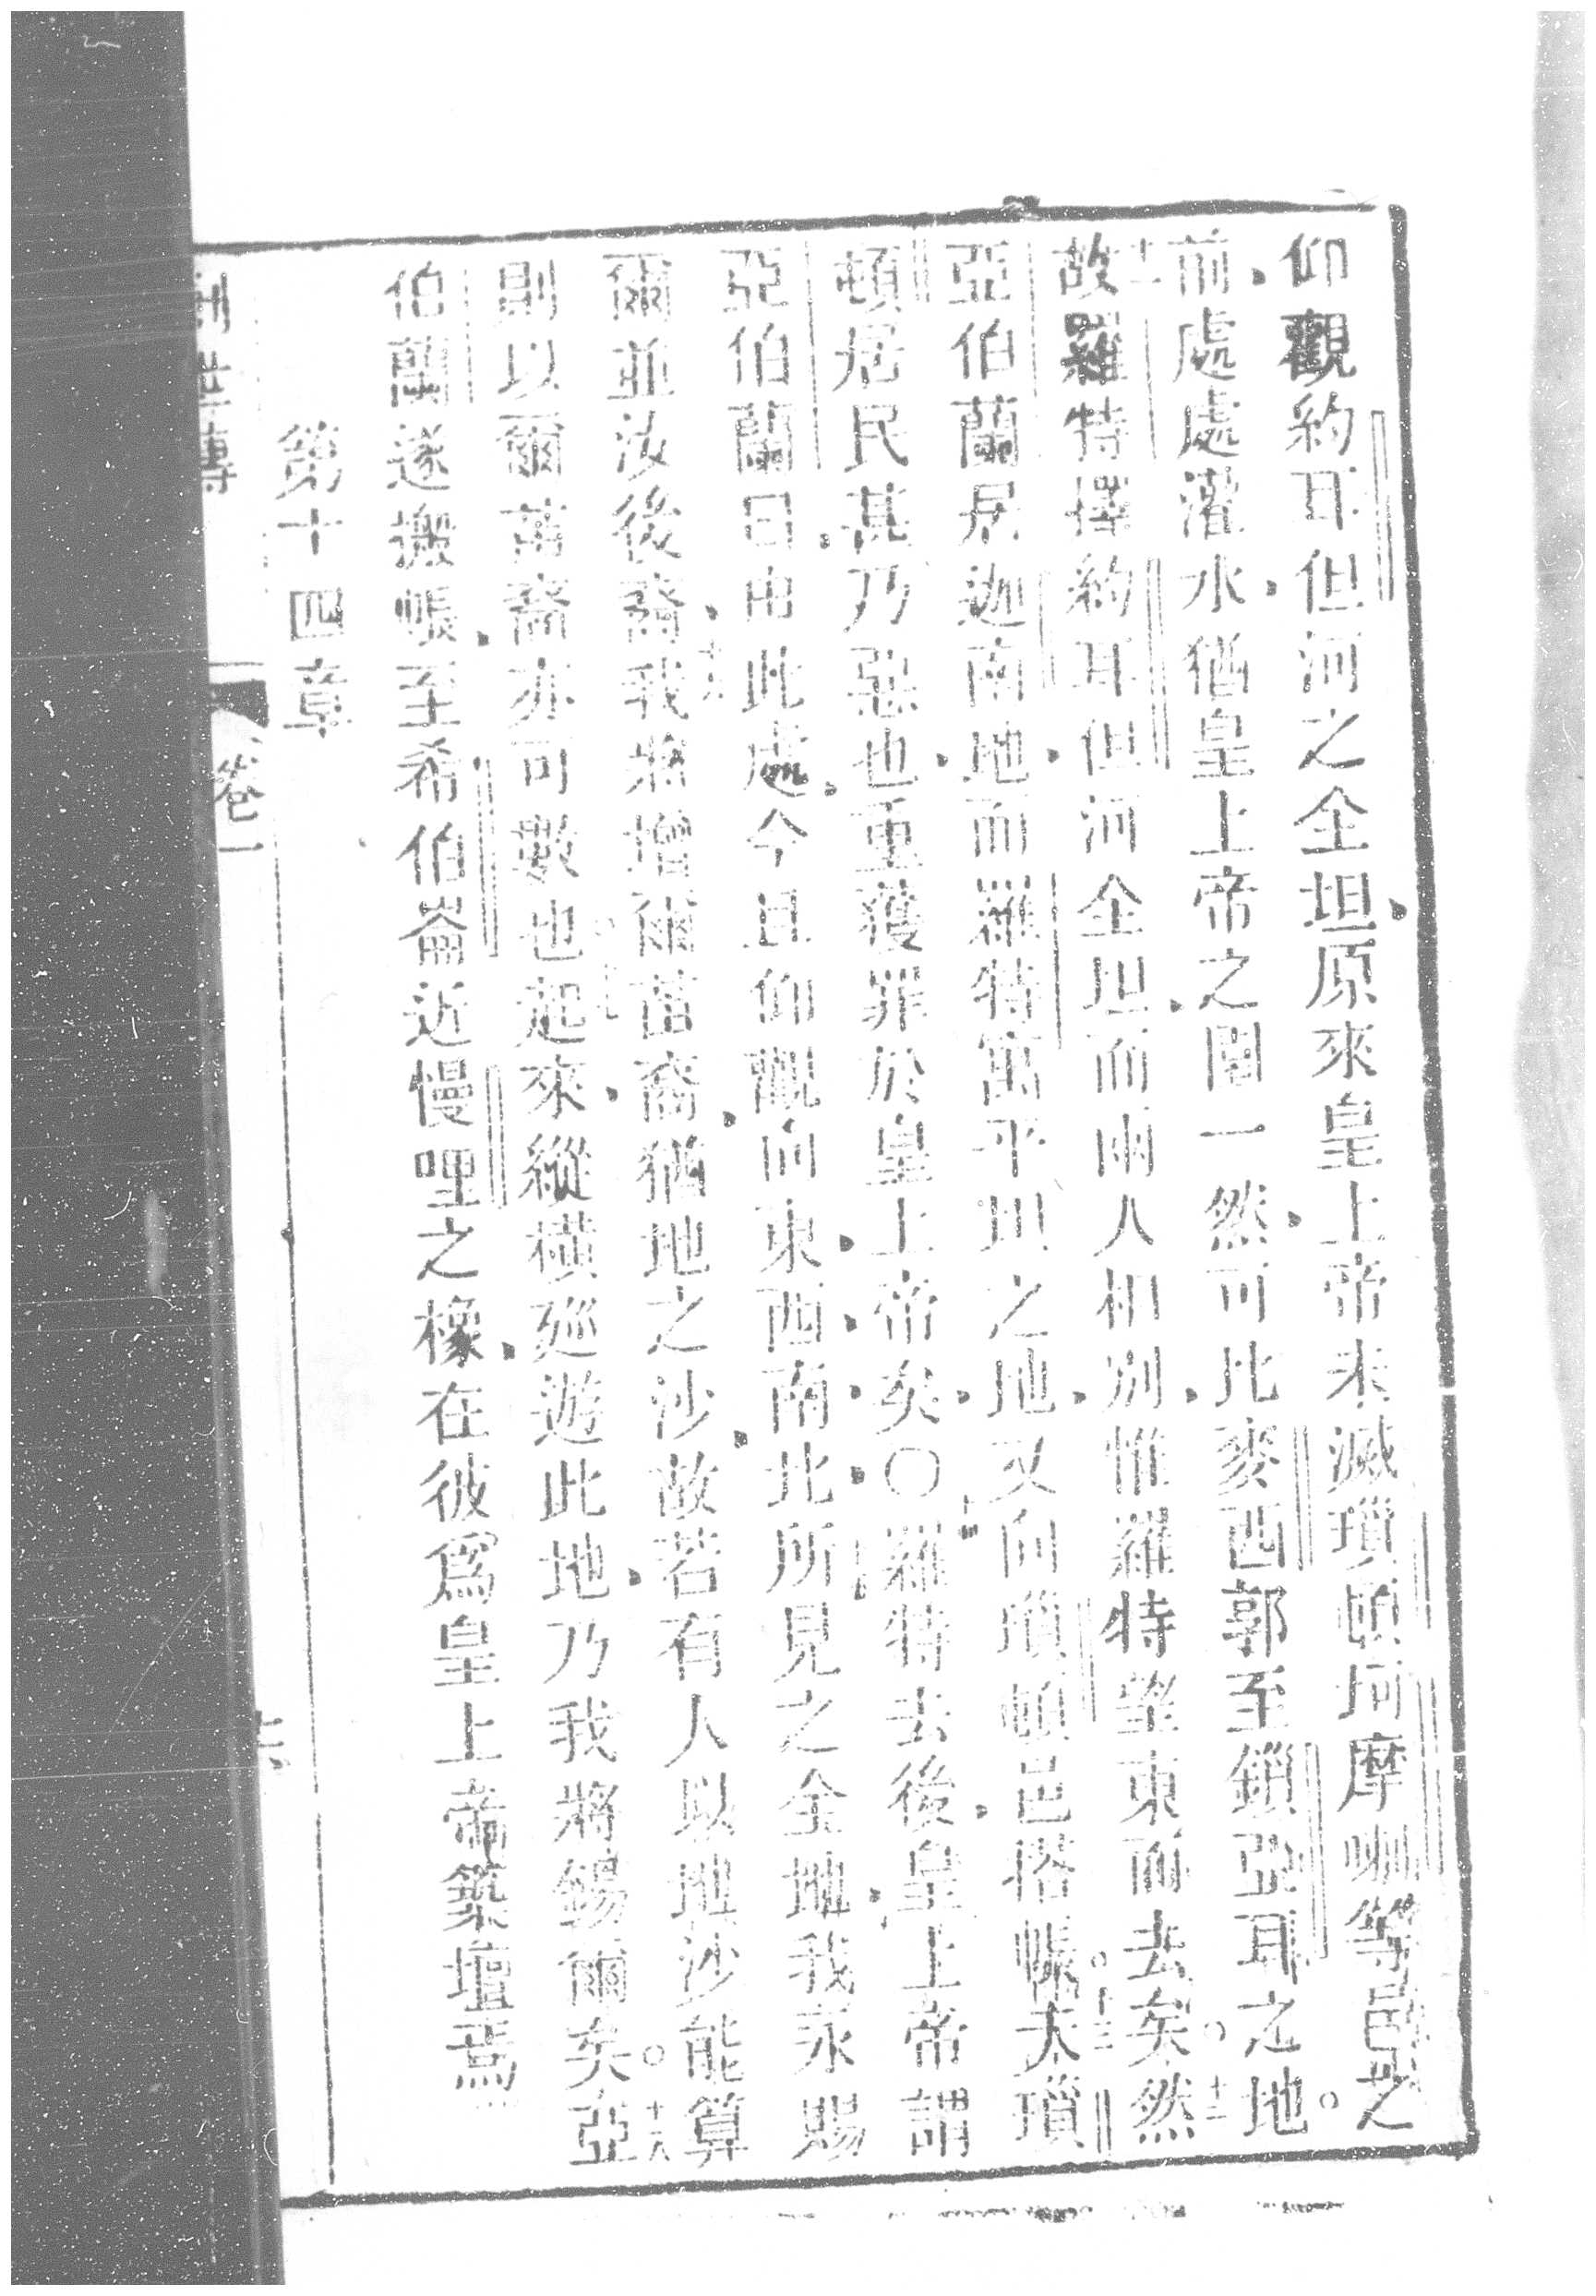 仰觀約耳但河之全坦原來皇上帝未滅瑣頓坷摩喇等邑之
前處處灌水猶皇上帝之園一然可比麥西郭至鎖亞耳之地
十一故羅特擇約耳但河全坦而兩人相別惟羅特望東而去矣十二然
亞伯蘭居迦南地而羅特寓平川之地又向瑣頓邑搭帳十三夫瑣
頓居民甚乃惡也重獲罪於皇上帝矣〇十四羅特去後皇上帝謂
亞伯蘭曰由此處今且仰觀向東西南北所見之全地我永賜
爾並汝後裔十六我將增爾苗裔猶地之沙故若有人以地沙能算
則以爾苗裔亦可數也起來縱橫廵遊此地乃我將錫爾矣十八亞
伯蘭遂搬帳至希伯崙近慢哩之橡在彼爲皇上帝築壇焉
第十四章
創世傳 卷一